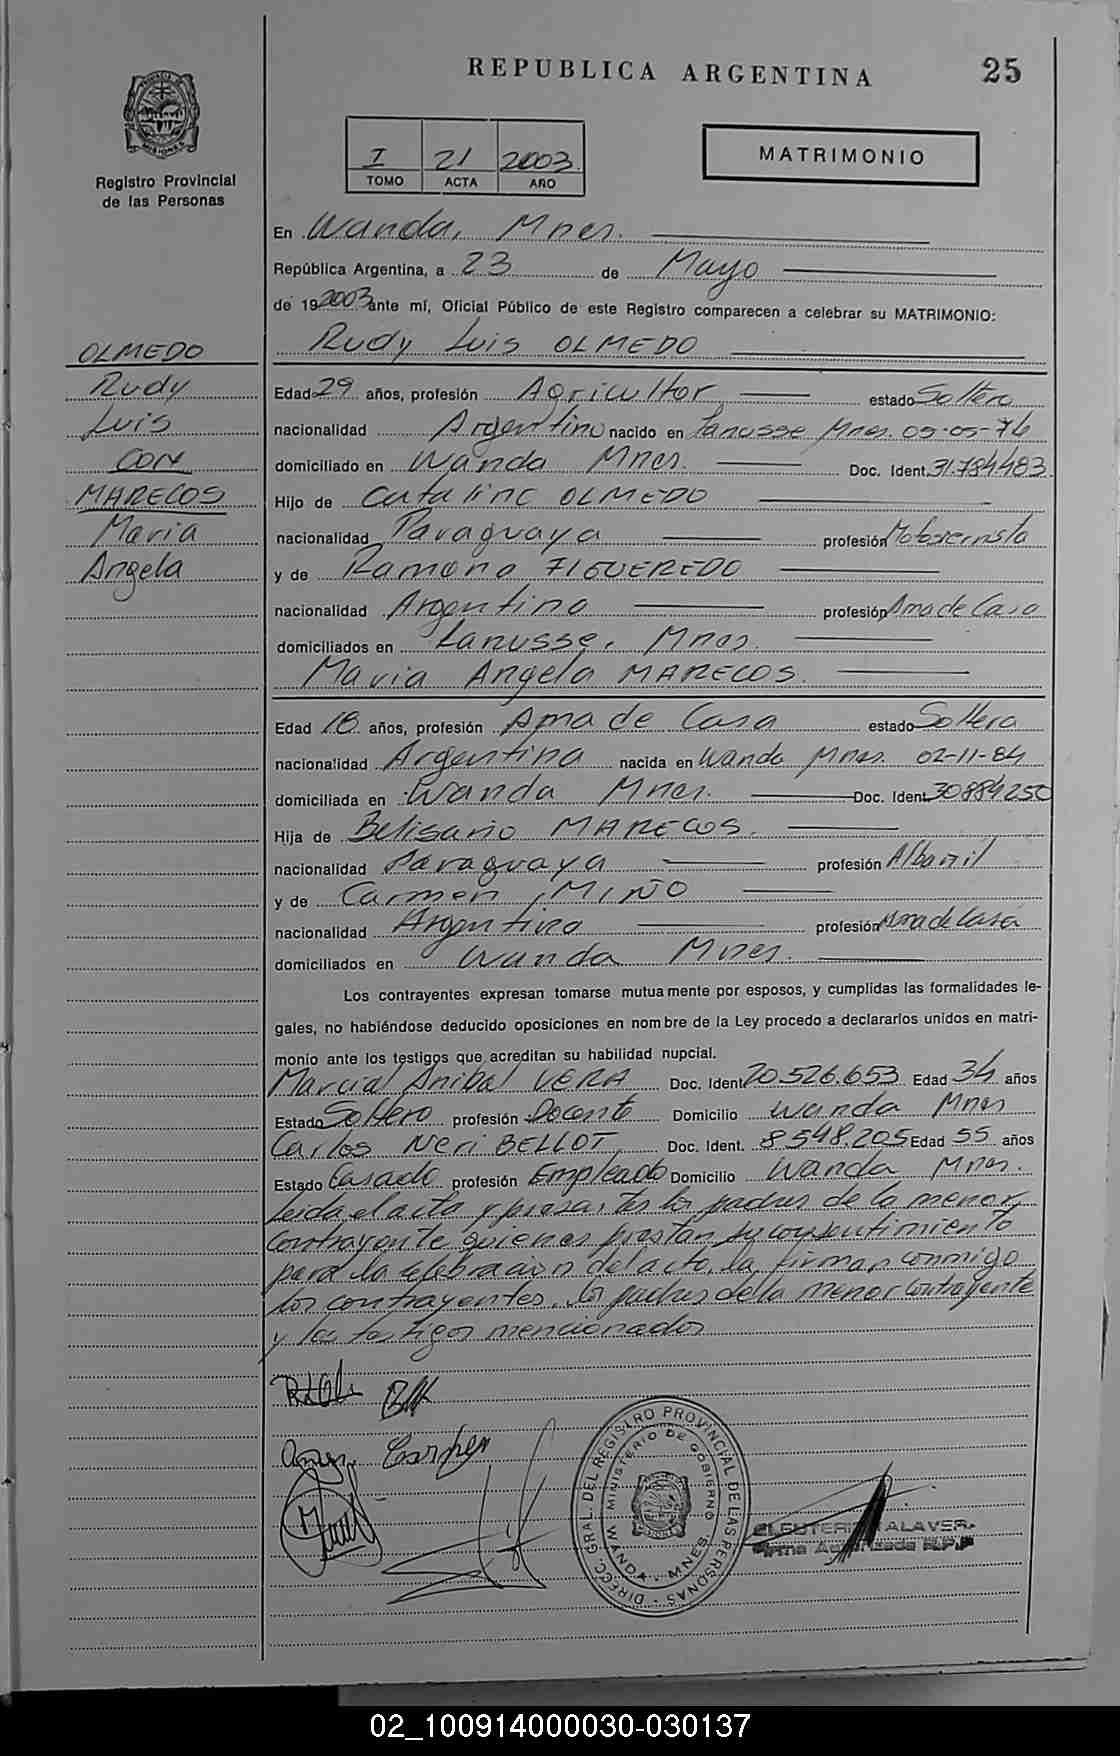 REPUBLICA ARGENTINA
25
I 21 2003
TOMO ACTA AÑO
MATRIMONIO
Registro Provincial
de las Personas
OLMEDO
Rudy
Luis
CON
MARECOS
Maria
Angela
En Wanda, Mnes.
República Argentina, a 23 de Mayo
de 19 2003 ante mí, Oficial Público de este Registro comparecen a celebrar su MATRIMONIO:
Rudy Luis OLMEDO
Edad 29 años, profesión Agricultor estado Soltero
nacionalidad Argentino nacido en Lanusse Mnes. 05-05-74
domiciliado en Wanda Mnes. Doc. Ident. 31.784483
Hijo de Catalino OLMEDO
nacionalidad Paraguaya profesión Motosierrista
y de Ramona FIGUEREDO
nacionalidad Argentina profesión Ama de Casa
domiciliados en Lanusse, Mnes.
Maria Angela MARECOS.
Edad 18 años, profesión Ama de Casa estado Soltera
nacionalidad Argentina nacida en Wanda Mnes. 02-11-84
domiciliada en Wanda Mnes. Doc. Ident. 30884250
Hija de Belisario MARECOS.
nacionalidad Paraguaya profesión Albañil
y de Carmen MIÑO
nacionalidad Argentina profesión Ama de Casa
domiciliados en Wanda Mnes.
Los contrayentes expresan tomarse mutuamente por esposos, y cumplidas las formalidades le-
gales, no habiéndose deducido oposiciones en nombre de la Ley procedo a declararlos unidos en matri-
monio ante los testigos que acreditan su habilidad nupcial.
Marcial Anibal VERA Doc. Ident 20.526.653 Edad 34 años
Estado Soltero profesión Docente Domicilio Wanda Mnes
Carlos Neri BELLOT Doc. Ident. 8.548.205 Edad 55 años
Estado Casado profesión Empleado Domicilio Wanda Mnes.
Leida el acta y presentes los padres de la menor
contrayente quienes prestan su consentimiento
para la celebración del acto, la firman conmigo
los contrayentes, los padres de la menor contrayente
y los testigos mencionados
DIRECC. GRAL. DEL REGISTRO PROVINCIAL DE LAS PERSONAS
MINISTERIO DE GOBIERNO
WANDA - MNES.
02_100914000030-030137